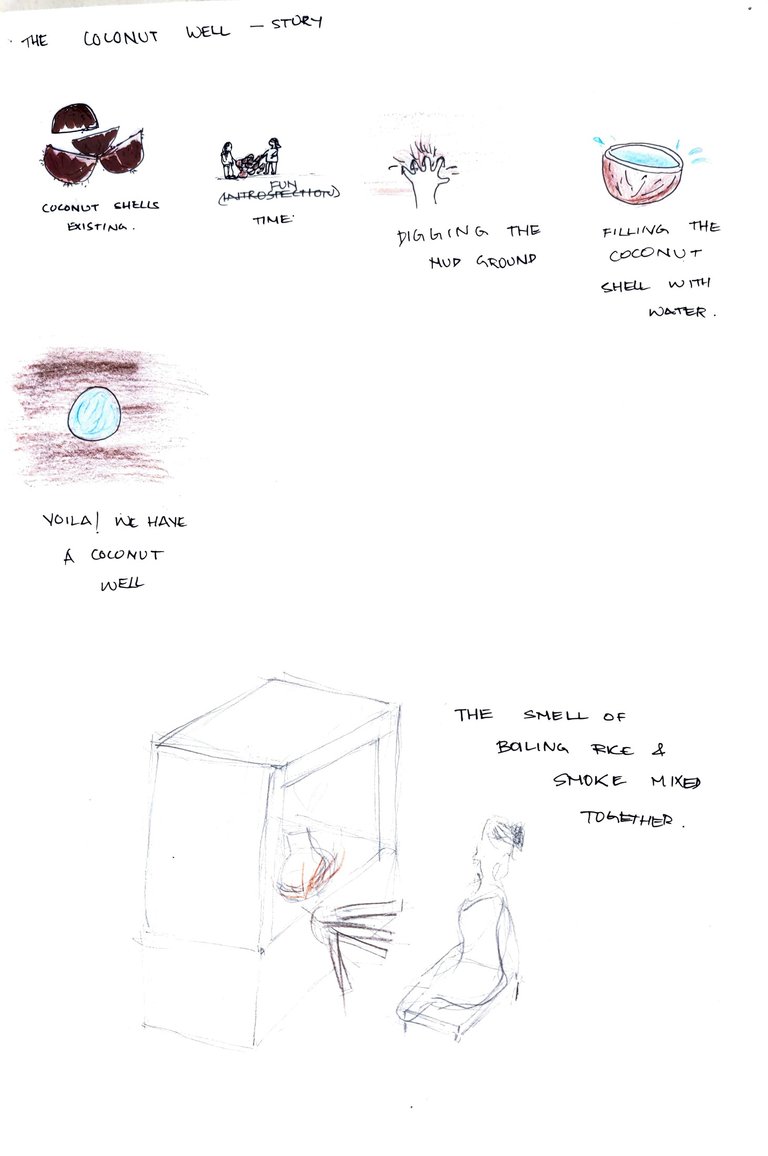 THE COCONUT WELL - STORY
COCONUT SHELLS
EXISTING.
FUN
(INTROSPECTION)
TIME.
DIGGING THE
MUD GROUND
FILLING THE
COCONUT
SHELL WITH
WATER.
VOILA! WE HAVE
A COCONUT
WELL
THE SMELL OF
BOILING RICE &
SMOKE MIXED
TOGETHER.